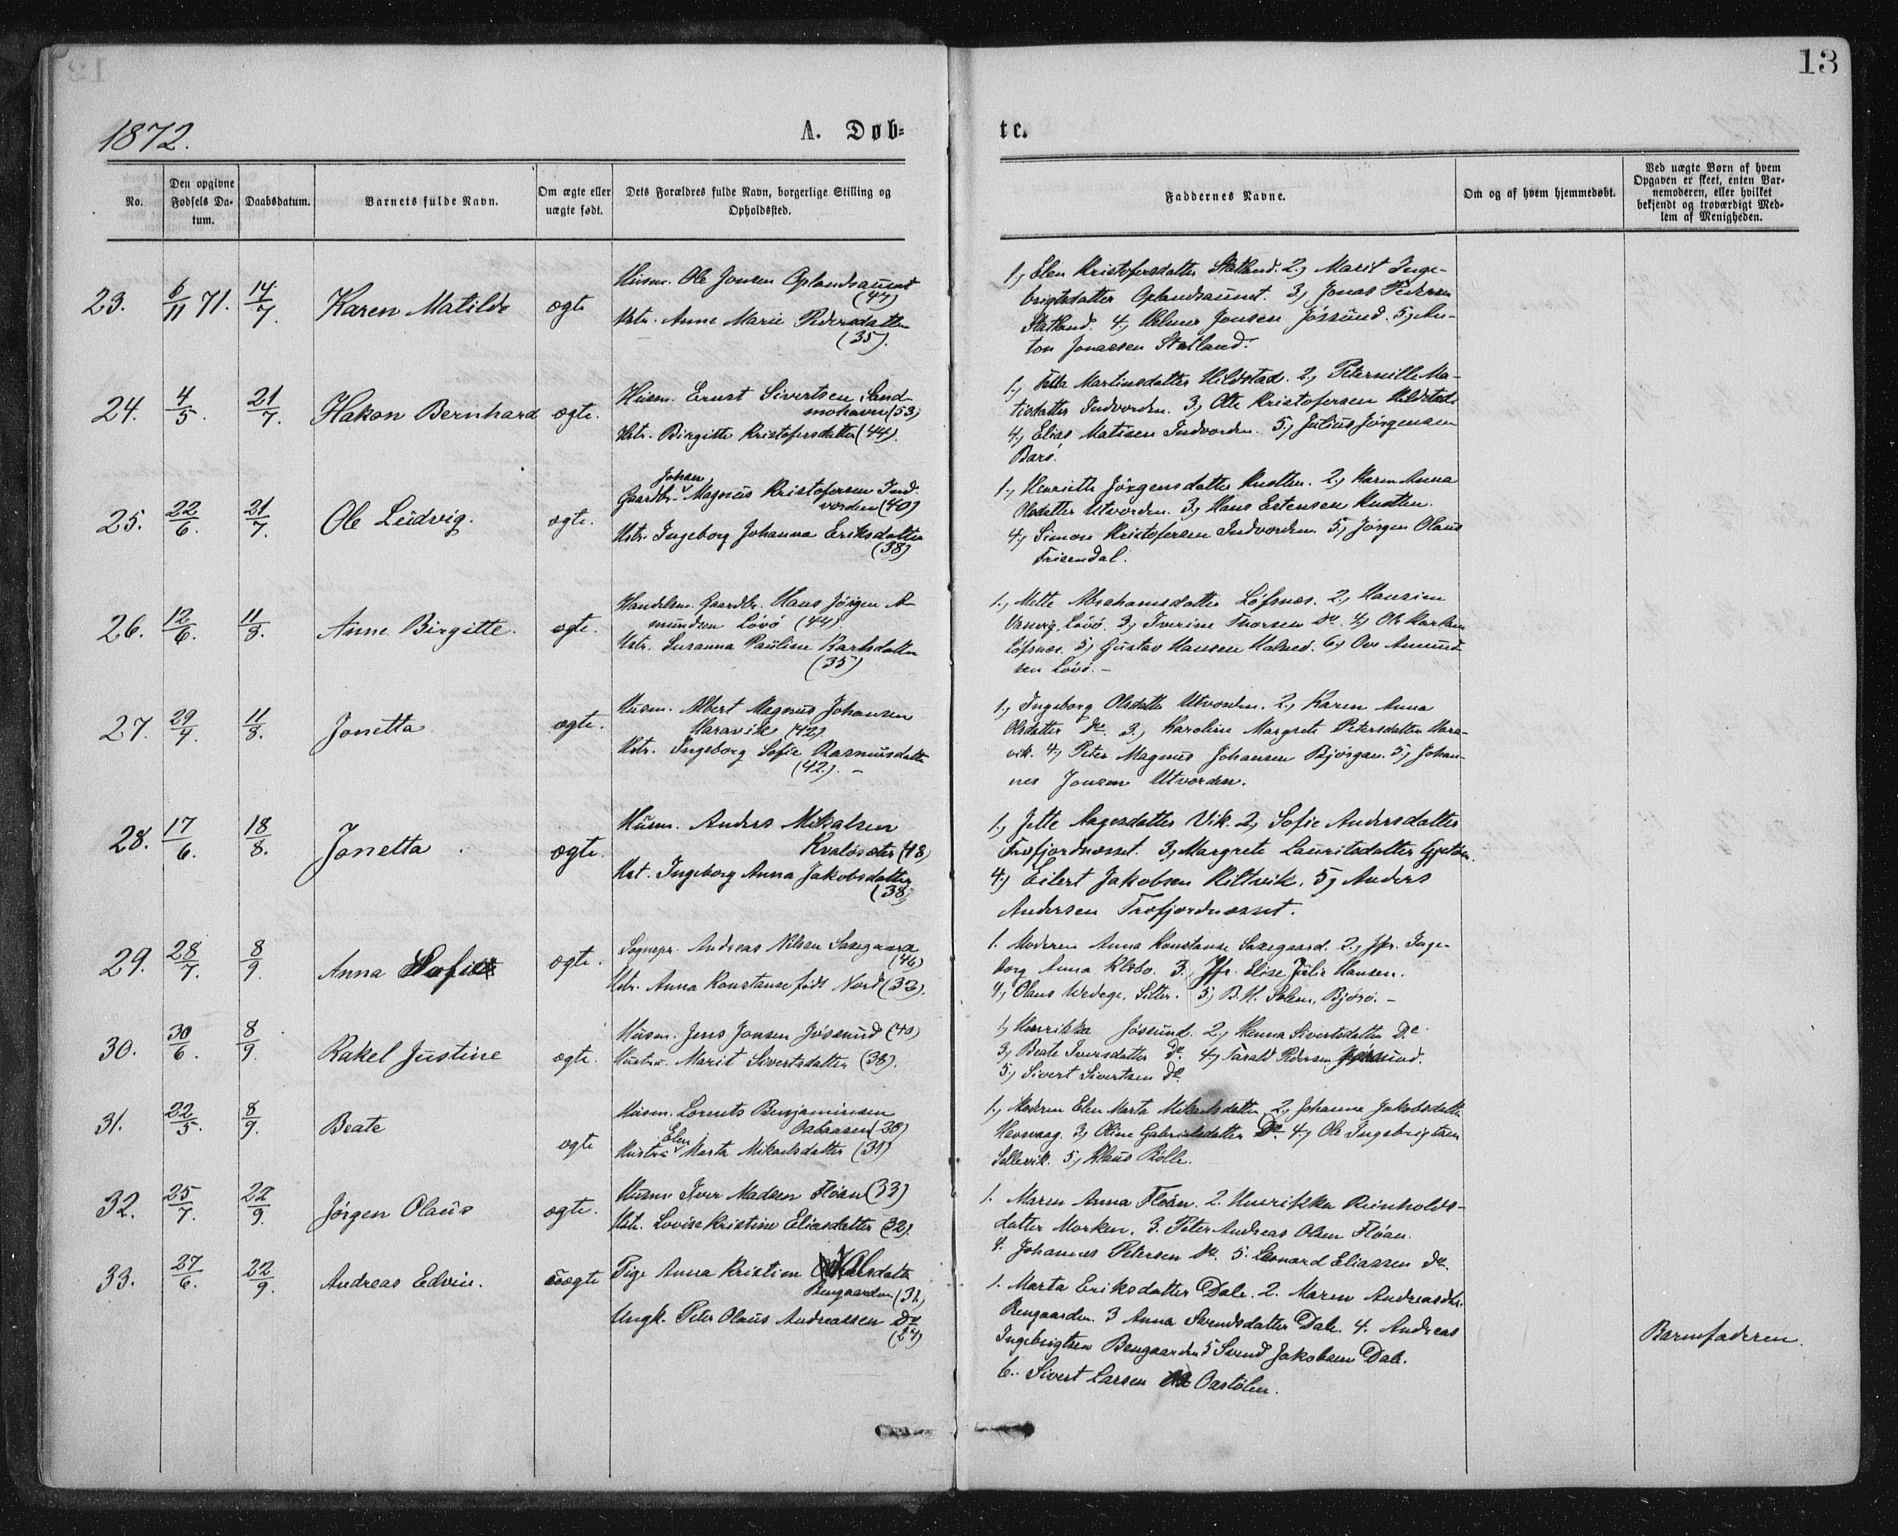 13
1872.
A. Døb-
te.
No.
Den opgivne Fødsels Datum.
Daabsdatum.
Barnets fulde Navn.
Om ægte eller uægte født.
Dets Forældres fulde Navn, borgerlige Stilling og Opholdssted.
Faddernes Navne.
Om og af hvem hjemmedøbt.
Ved uægte Børn af hvem
Opgaven er skeet, enten Bar-
nemoderen, eller hvilket
bekjendt og troværdigt Med-
lem af Menigheden.
23. 6/11 71. 14/7. Karen Matilde ægte
Husm. Ole Jonsen Oplandsaunet
(47)
Hstr. Anne Marie Pedersdatter
(35).
1, Elen Kristofersdatter Statland. 2, Marit Inge-
brigtsdatter Oplandsaunet. 3, Jonas Pedersen
Statland. 4, Helmer Jonsen Jøssund. 5, An-
ton Jonassen Statland.
24. 4/5. 21/7. Hakon Bernhard ægte.
Husm. Ernst Sivertsen Sand-
mohavn (53)
Hstr. Birgitte Kristofersdatter (44).
1, Martinsdatter Hildstad. 2, Peternille Ma-
tisdatter Indvorden. 3, Ole Kristofersen Hildstad.
4, Elias Matisen Indvorden. 5, Julius Jørgensen
25. 22/6. 21/7. Ole Ludvig. ægte.
Johan
Gaardbr. Magnus Kristofersen Ind-
vorden (40)
Hstr. Ingeborg Johanna Eriksdatter
(38)
1, Henriette Jørgensdatter Knotten. 2, Karen Anna
Olsdatter Utvorden. 3, Hans Estensen Knotten.
4, Simon Kristofersen Indvorden. 5, Jørgen Olaus
Frisendal.
26. 12/6. 11/8. Anne Birgitte. ægte.
Handelsm. Gaardbr. Hans Jørgen A-
mundsen Løvø (44)
Hstr. Susanna Pauline Karlsdatter
(35)
1, Mette Abrahamsdatter Løfsnes. 2, Hansine
Løvø. 3, Iverine Thorsen Do. 4, Ole
Løfsnes. 5, Gustav Hansen 6, Ove Amund-
sen Løvø. -
27. 29/4. 11/8. Jonetta. ægte.
Husm. Albert Magnus Johansen
Haravik (42)
Hstr. Ingeborg Sofie Rasmusdatter
(42). -
1, Ingeborg Olsdatter Utvorden. 2, Karen Anna
Olsdatter Do. 3, Karoline Margrete Petersdatter Hara-
vik. 4, Peter Magnus Johansen Bjørgan. 5, Johan-
nes Jonsen Utvorden.
28. 17/6. 18/8. Jonetta. ægte.
Husm. Anders Mikalsen
Kvaløsæter (48)
Hst. Ingeborg Anna Jakobsdatter
(38)
1, Jette Aagesdatter Vik. 2, Sofie Andersdatter
Trefjordnesset. 3, Margrete Lauritsdatter
4, Eilert Jakobsen Kiltvik. 5, Anders
Andersen Trefjordnesset.
29. 28/7. 8/9. Anna Sofie ægte.
Sognepr. Andreas Nilsen Saxegaard
(46)
Hstr. Anna Konstanse født Nord (33).
1. Moderen Anna Konstanse Saxegaard. 2, Jfr. Inge-
borg Anna Klebo. 3. Jfr. Elise Julie Hansen.
4, Olaus Wedege, Sitter. 5, B. H. Solem, Bjørø. -
30. 30/6. 8/9. Rakel Justine ægte.
Husm. Jens Jonsen Jøssund (40)
Hustru Marit Sivertsdatter (38).
1, Henrikka Jøssund. 2, Henna Sivertsdatter Do.
3, Beate Iversdatter Do. 4, Tarald Pedersen Jøssund.
5, Sivert Sivertsen Do.
31. 22/5. 8/9. Beate ægte
Husm. Lorents Benjaminsen
(38)
Elen
Hustru Marta Mikaelsdatter (31)
1, Moderen Elen Marta Mikaelsdatter. 2, Johanna Jakobsdatter
3, Oline Gabrielsdatter Do. 4, Ole Ingebrigtsen
Sellevik. 5, Klaus Bølle.
32. 25/7. 22/9. Jørgen Olaus ægte.
Husm Iver Madsen Fløan (33)
Hstr. Lovise Kristine Eliasdatter (32).
1. Maren Anna Fløan. 2. Henrikka Reinholds-
datter Morken. 3. Peter Andreas Olsen Fløan.
4. Johannes Petersen Do. 5. Leonard Eliassen Do.
33. 27/6. 22/9. Andreas Edvin. uægte
Pige Anna Kristine Olsdatter
Bengaarden (31)
Ungk. Peter Olaus Andreassen Do
(24)
1. Marta Eriksdatter Dale. 2. Maren Andreasdtr.
Bengaarden. 3 Anna Svendsdatter Dale. 4. Andreas
Ingebrigtsen Bengaarden 5 Svend Jakobsen Dale.
6. Sivert Larsen
Barnefaderen.